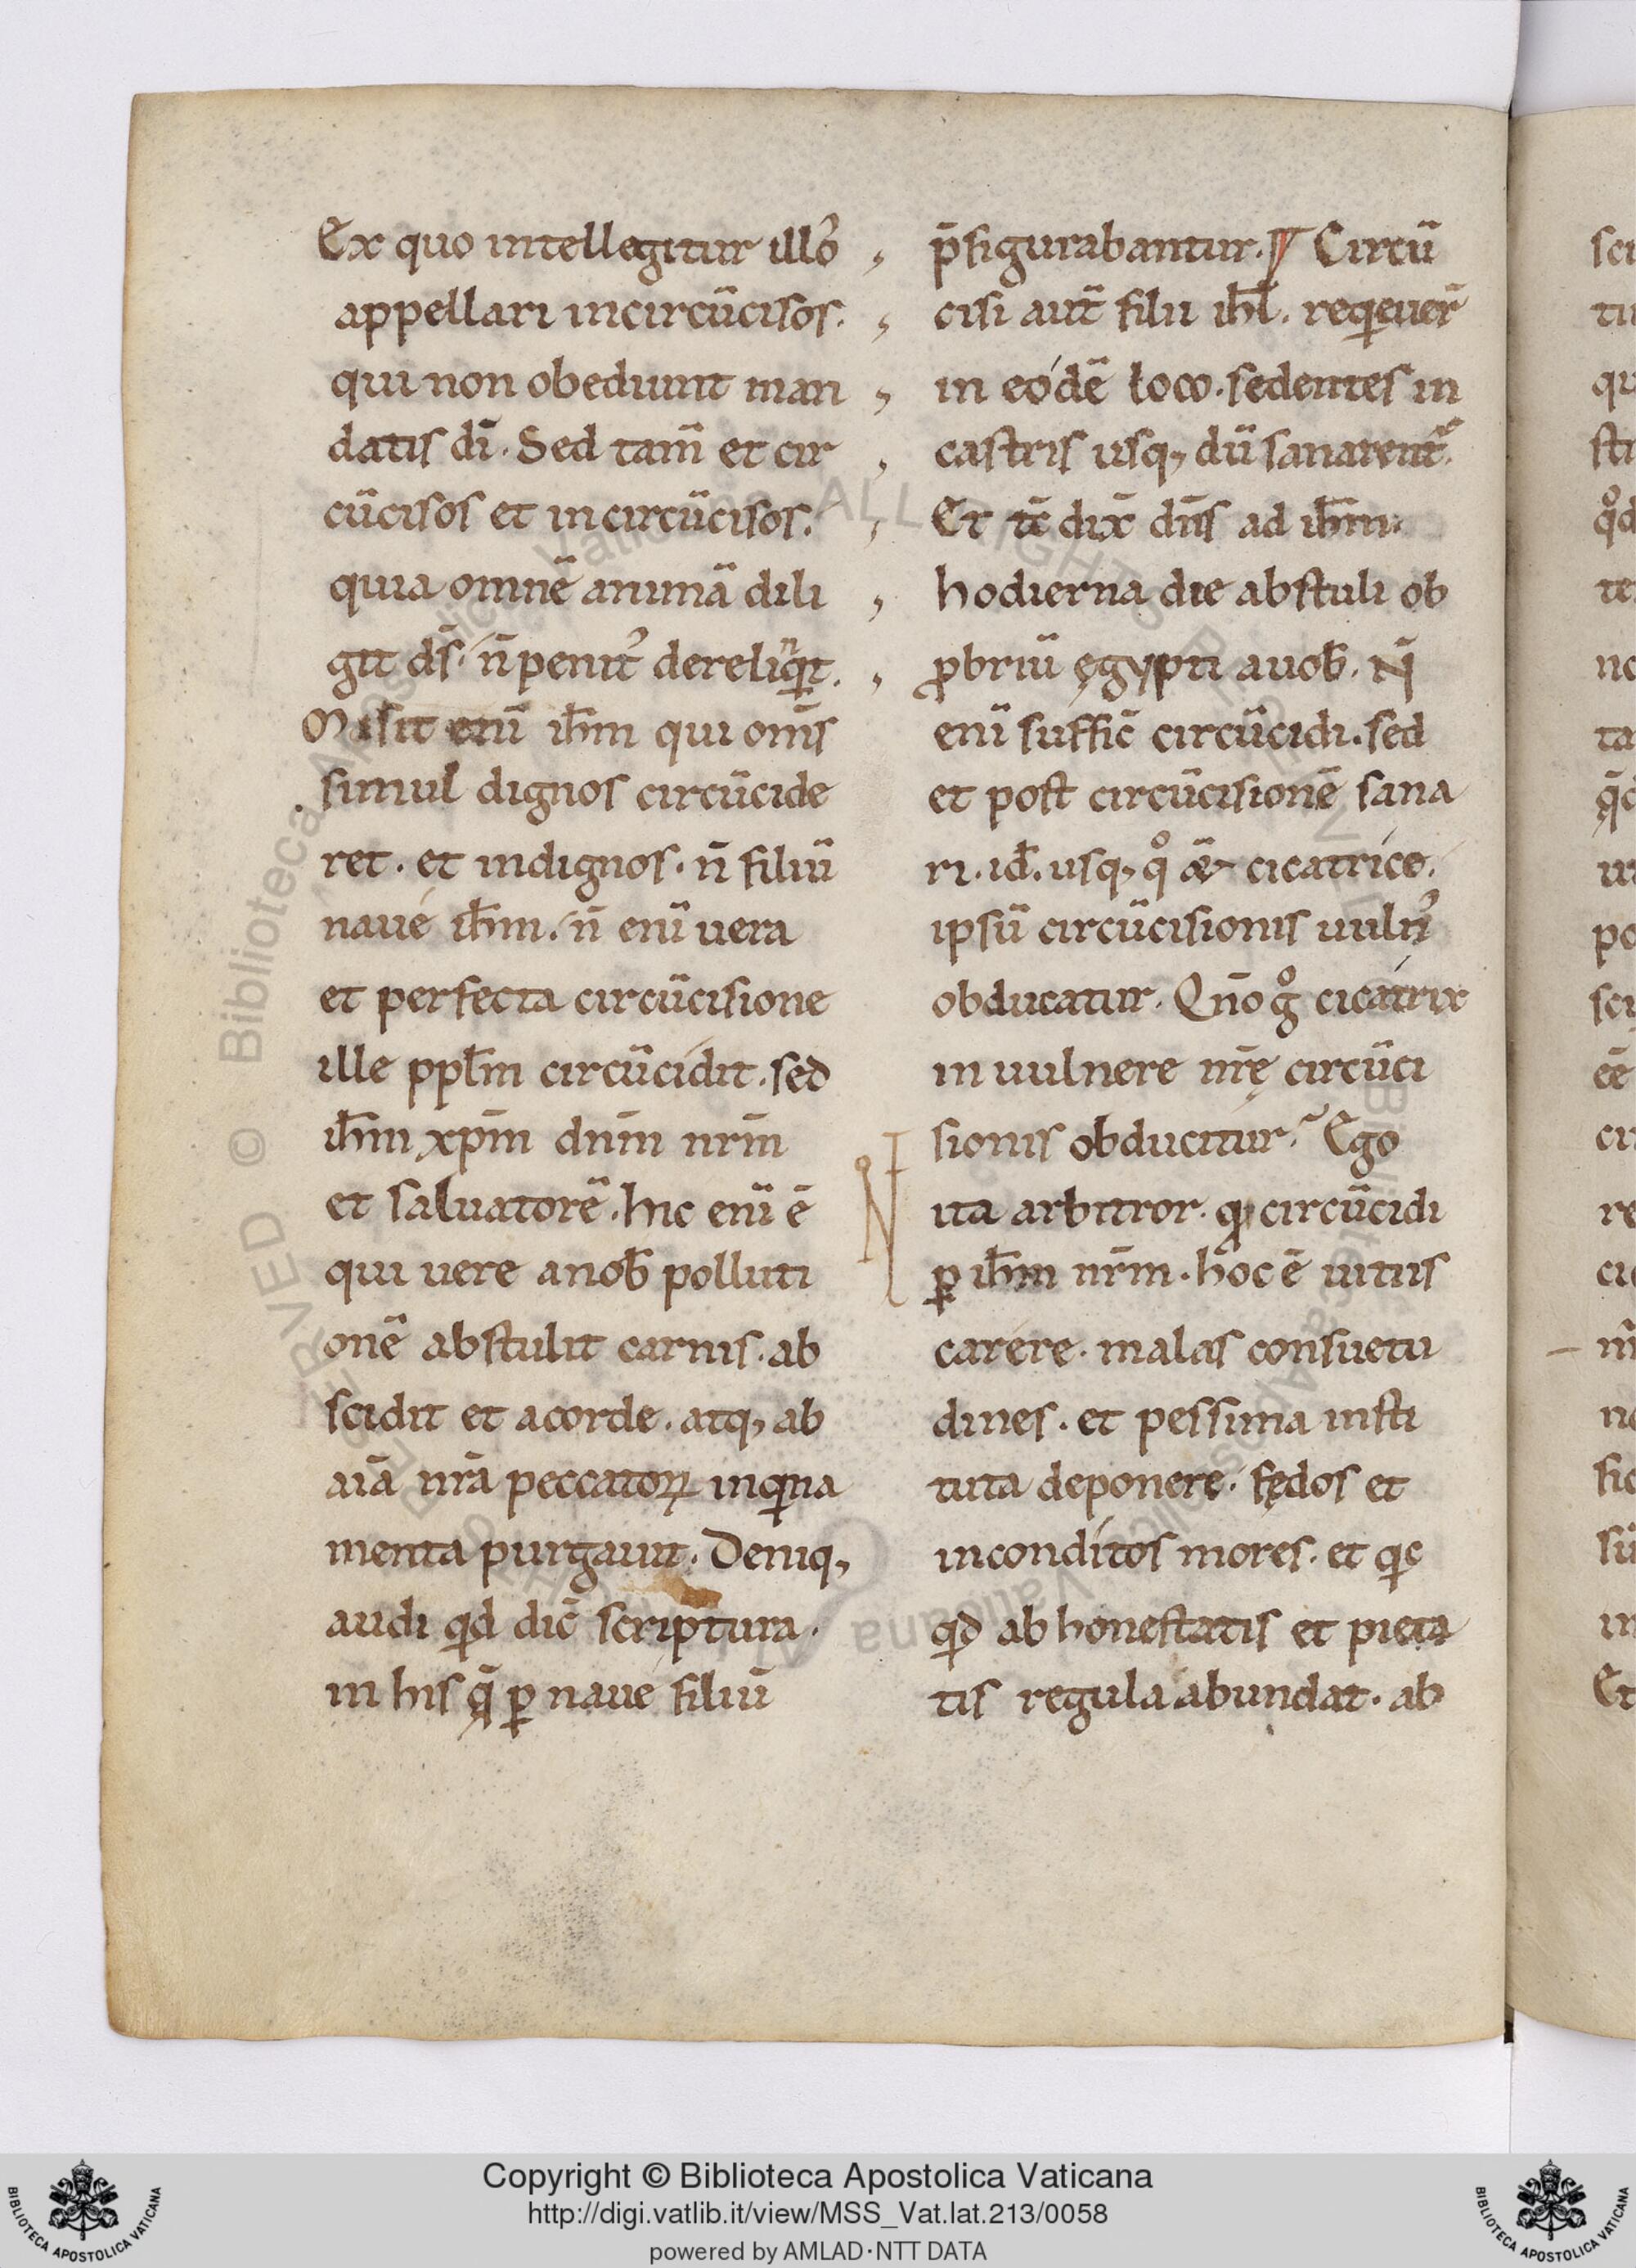 Ex quo intellegitur illoˢ
appellari incircūcisos.
qui non obediunt man
datis di̅. Sed tam̅ et cir
cūcisos et incircūcisos.
quia omnē animā dili
git ds̅. n̅ penit᷒ dereliⁿqͥt.
Misit eni̅ ihm̅ qui om̅s
simul dignos circūcide
ret. et indignos. n̅ filiū
naué ihm̅. n̅ eni̅ uera
et perfecta circūcisione
ille ppl̅m circūcidit. sed
ihm̅ xpm̅ dnm̅ nrm̅
et saluatorē. hic eni̅ ē
qui uere anob̅ polluti
onē abstulit carnis. ab
scidit et acorde. atq; ab
aiā nrā peccatoꝝ inqͥna
menta purgauit. Deniq;
audi qͥd dic̅ scriptura.
in his q̅ ꝑ naué filiū
p̅figurabantur. ¶ Circū
cisi aut̅ filii ihl̅. reqͥeuer̅
in eódē loco. sedentes in
castris usq; dū sanarent᷑.
Et tc̅ dix̅ dn̅s ad ihm̅.
hodierna die abstuli ob
ꝓbriū ęgypti auob̅. N̅
eni̅ suffic̅ circūcidi. sed
et post circūcisionē sana
ri. id̅. usq; qͦ cicatrice.
ipsū circūcisionis uuln᷒
obducatur. Qn̅o gͦ cicátrix
in uulnere nr̅ę circūci
sionis obducitur. Ego
ita arbitror. qꝫ circūcidi
ꝑ ihm̅ nrm̅. hoc ē uitiis
carére. malas consuetu
dines. et pessima insti
tuta deponere. fędos et
incondítos mores. et qͥc
qͥd ab honestatis et pieta
tis regula abundat. ab
sci
tu
qu
Et
Copyright © Biblioteca Apostolica Vaticana
http://digi.vatlib.it/view/MSS_Vat.lat.213/0058
powered by AMLAD·NTT DATA
BIBLIOTECA APOSTOLICA VATICANA
BIBLIOTECA APOSTOLICA VATICANA